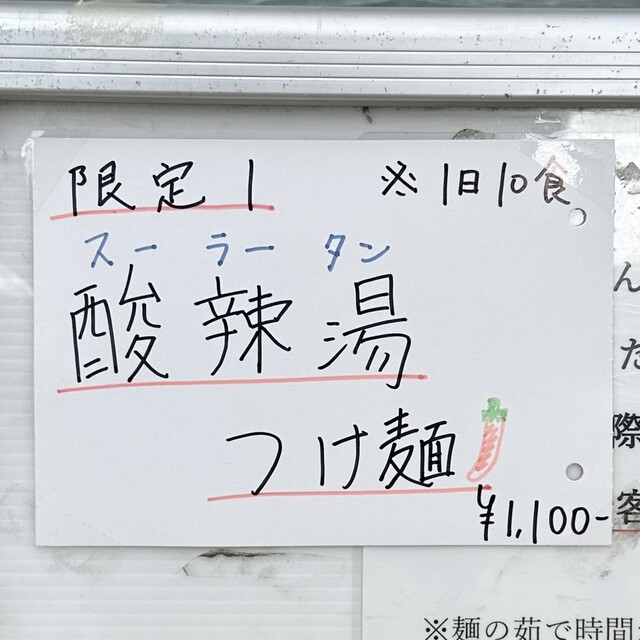 限定1 ※1日10食
スーラータン
酸辣湯
つけ麺
¥1,100-
ん
た
際
客
※麺の茹で時間